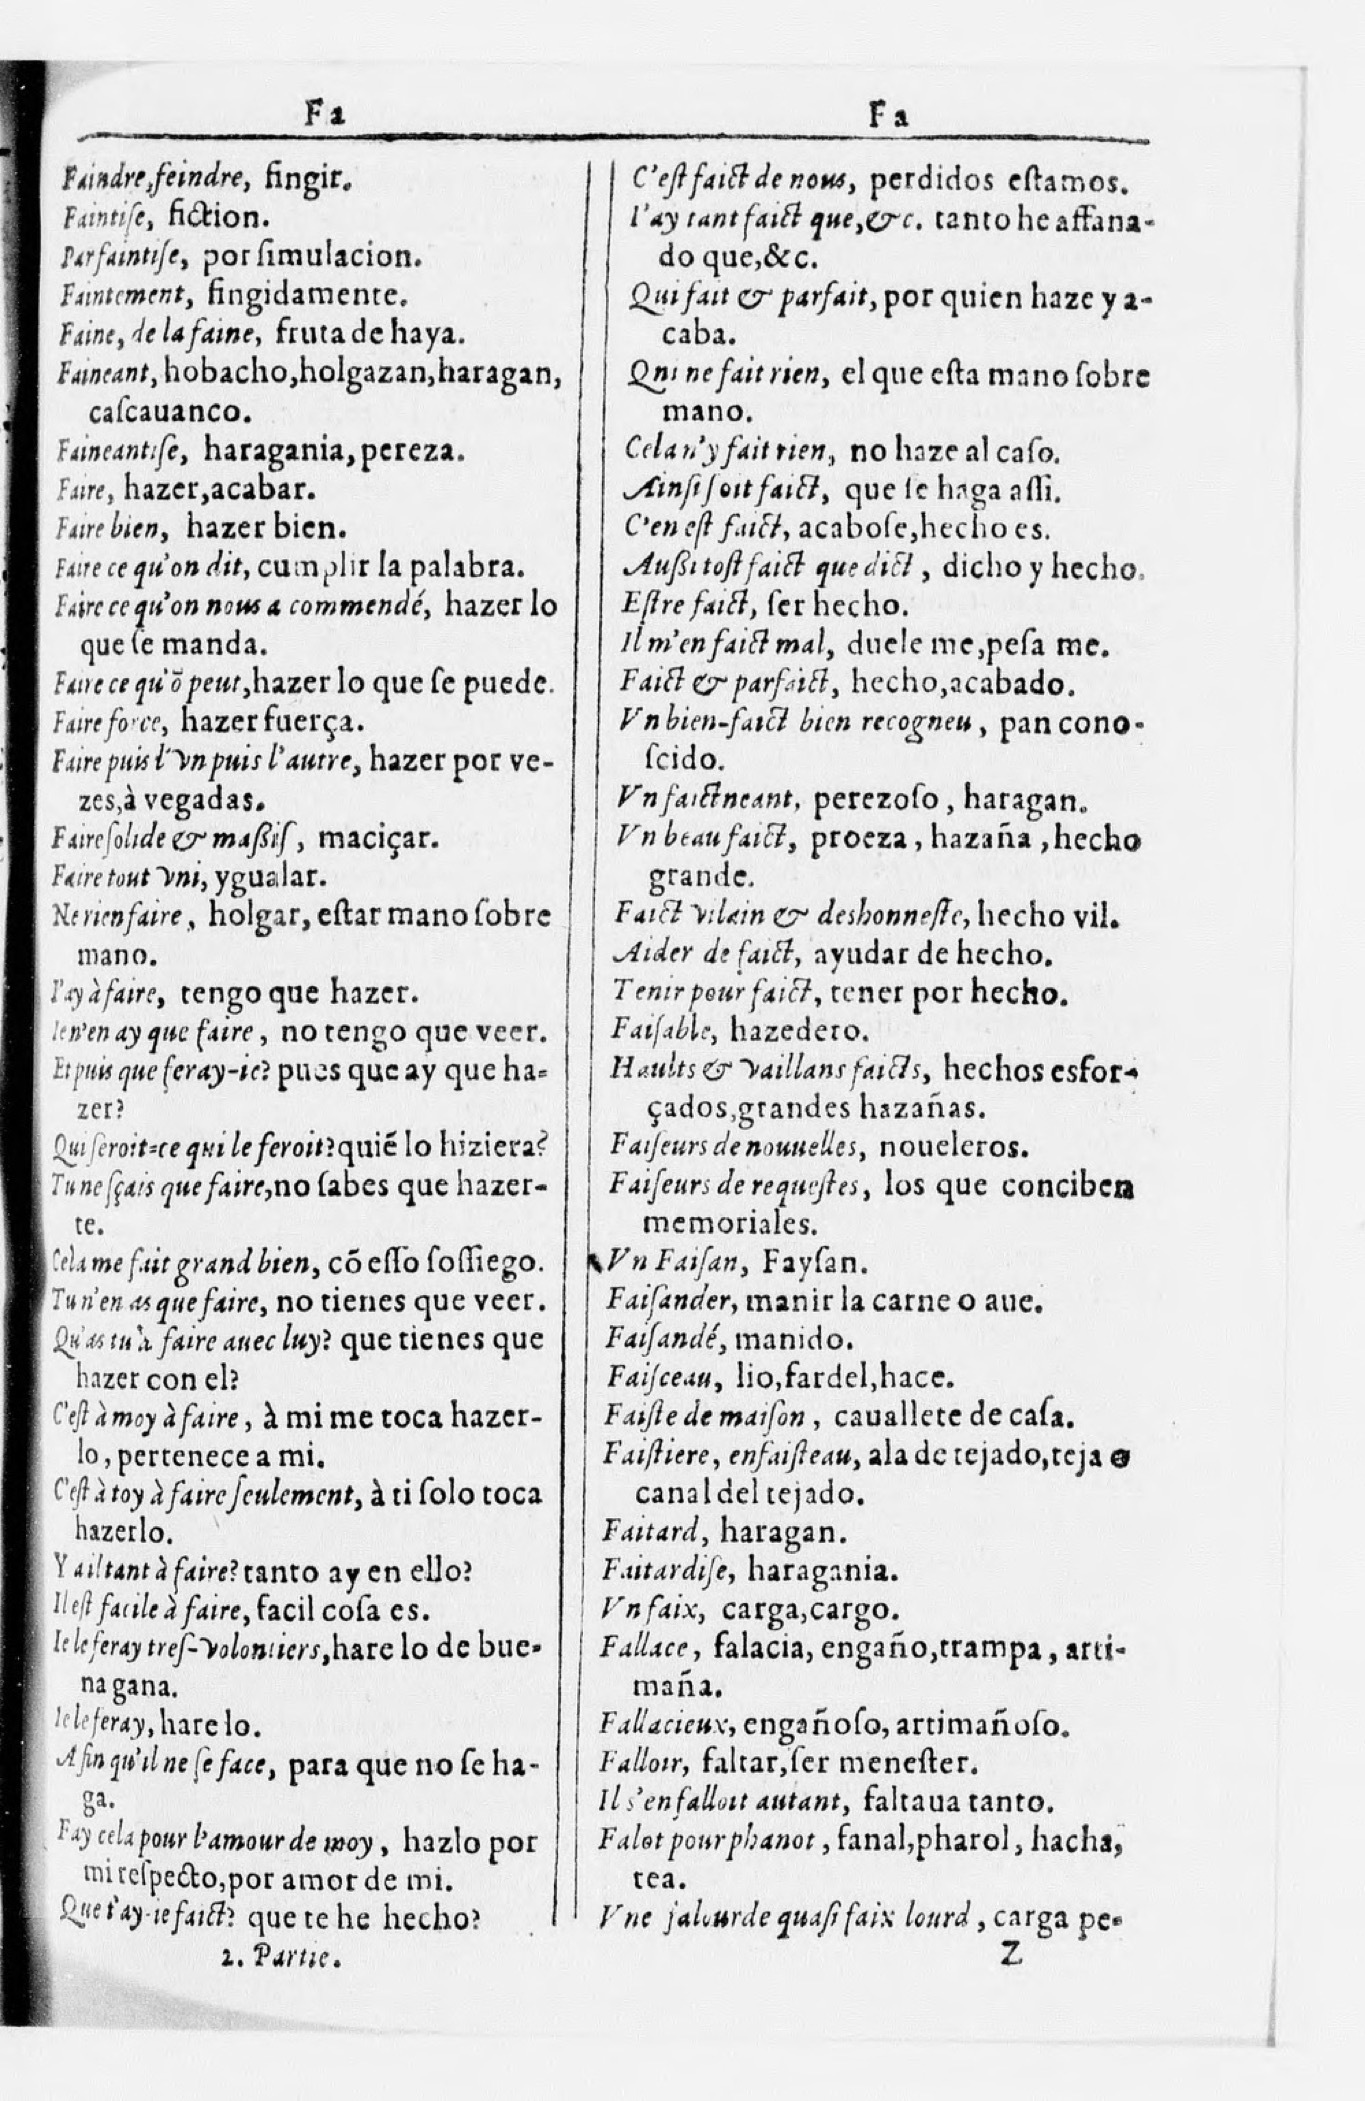 Fa
Faindre, feindre, fingir.
Faintiſe, fiction.
Par faintiſe, por ſimulacion.
Faintement, fingidamente.
Faine, de la faine, fruta de haya.
Faineant, hobacho, holgazan, haragan,
caſcauanco.
Faineantiſe, haragania, pereza.
Faire, hazer, acabar.
Faire bien, hazer bien.
Faire ce qu'on dit, cumplir la palabra.
Faire ce qu'on nous a commendé, hazer lo
que ſe manda.
Faire ce qu'õ peut, hazer lo que ſe puede.
Faire force, hazer fuerça.
Faire puis l'vn puis l'autre, hazer por ve-
zes, à vegadas.
Faire ſolide & maßiſ, maciçar.
Faire tout vni, ygualar.
Ne rien faire, holgar, eſtar mano ſobre
mano.
I'ay à faire, tengo que hazer.
Ie n'en ay que faire, no tengo que veer.
Et puis que feray-ie? pues que ay que ha-
zer?
Qui ſeroit-ce qui le feroit? quiẽ lo hiziera?
Tu ne ſçais que faire, no ſabes que hazer-
te.
Cela me fait grand bien, cõ eſſo ſoſſiego.
Tu n'en as que faire, no tienes que veer.
Qu'as tu à faire auec luy? que tienes que
hazer con el?
C'eſt à moy à faire, à mi me toca hazer-
lo, pertenece a mi.
C'eſt à toy à faire ſeulement, à ti ſolo toca
hazerlo.
Y a il tant à faire? tanto ay en ello?
Il eſt facile à faire, facil coſa es.
Ie le feray treſ-volontiers, hare lo de bue-
na gana.
Ie le feray, hare lo.
A fin qu'il ne ſe face, para que no ſe ha-
ga.
Fay cela pour l'amour de moy, hazlo por
mi reſpecto, por amor de mi.
Que t'ay-ie faict? que te he hecho?
2. Partie.
Fa
C'eſt faict de nous, perdidos eſtamos.
I'ay tant faict que, &c. tanto he affana-
do que, &c.
Qui fait & parfait, por quien haze y a-
caba.
Qui ne fait rien, el que eſta mano ſobre
mano.
Cela n'y fait rien, no haze al caſo.
Ainſi ſoit faict, que ſe haga aſſi.
C'en eſt faict, acaboſe, hecho es.
Außi toſt faict que dict, dicho y hecho.
Eſtre faict, ſer hecho.
Il m'en faict mal, duele me, peſa me.
Faict & parfaict, hecho, acabado.
Vn bien-faict bien recogneu, pan cono-
ſcido.
Vn faict neant, perezoſo, haragan.
Vn beau faict, proeza, hazaña, hecho
grande.
Faict vilain & deshonneſte, hecho vil.
Aider de faict, ayudar de hecho.
Tenir pour faict, tener por hecho.
Faiſable, hazedero.
Haults & vaillans faicts, hechos esfor-
çados, grandes hazañas.
Faiſeurs de nouuelles, noueleros.
Faiſeurs de requeſtes, los que conciben
memoriales.
Vn Faiſan, Fayſan.
Faiſander, manir la carne o aue.
Faiſandé, manido.
Faiſceau, lio, fardel, hace.
Faiſte de maiſon, cauallete de caſa.
Faiſtiere, enfaiſteau, ala de tejado, teja o
canal del tejado.
Faitard, haragan.
Faitardiſe, haragania.
Vn faix, carga, cargo.
Fallace, falacia, engaño, trampa, arti-
maña.
Fallacieux, engañoſo, artimañoſo.
Falloir, faltar, ſer meneſter.
Il s'en falloit autant, faltaua tanto.
Falot pour phanot, fanal, pharol, hacha,
tea.
Vne jalourde quaſi faix lourd, carga pe-
Z